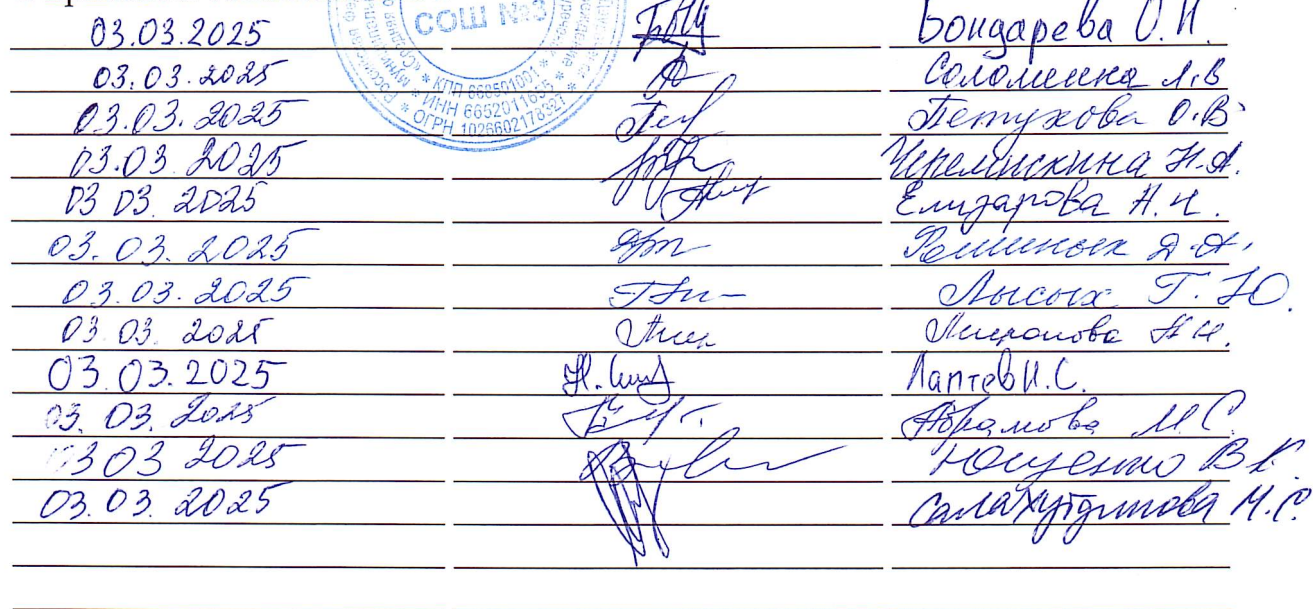 СОШ №3
КПП 668501001
ИНН 6652011655
ОГРН 1026602178327
03.03.2025 Бондарева О.И.
03.03.2025 Соломеина Л.В
03.03.2025 Петухова О.В
03.03.2025 Черемискина Н.А.
03 03. 2025 Елизарова А.И.
03.03.2025 Д.А.
03.03.2025 Лысых Т.Ю.
03.03. 2025
03.03.2025 Лаптев И.С.
03.03.2025 Абрамова М.С.
03 03 2025 Ющенко В.К.
03.03.2025 Салахутдинова М.С.